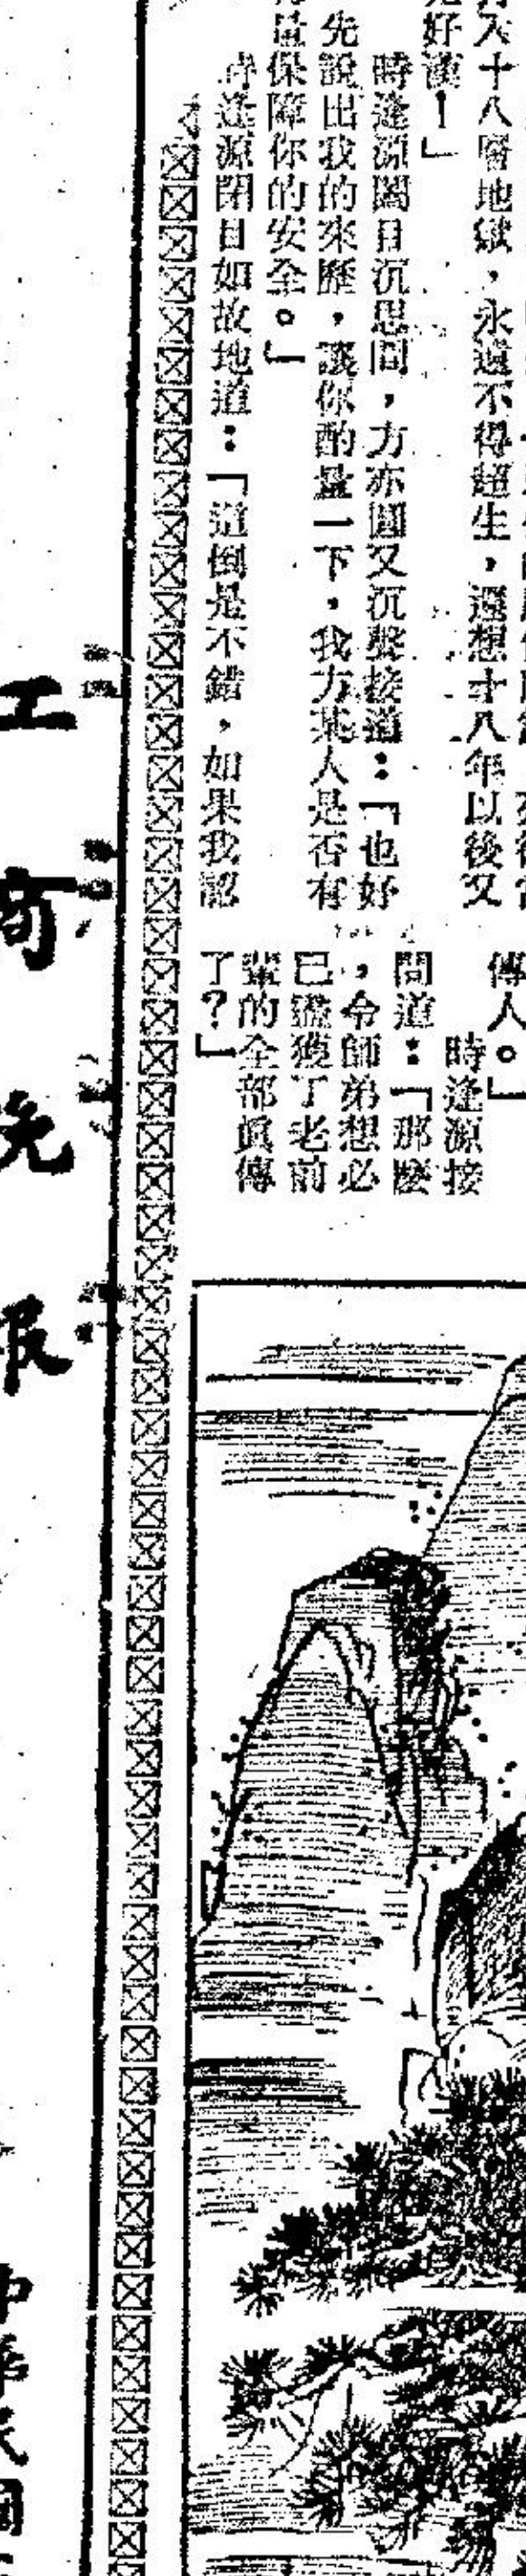 打入十八層地獄，永遠不得超生，還想十八年以後又
好漢！」
時逢源闔目沉思間，方亦圓又沉聲接道：「也好
先說出我的來歷，讓你酌量一下，我方某人是否有
量保障你的安全。」
時逢源閉目如故地道：「這倒是不錯，如果我認
傳人。」
時逢源接
問道：「那麼
，令師弟想必
已盡獲了老前
輩的全部眞傳
了？」
工商晚報
中華民國